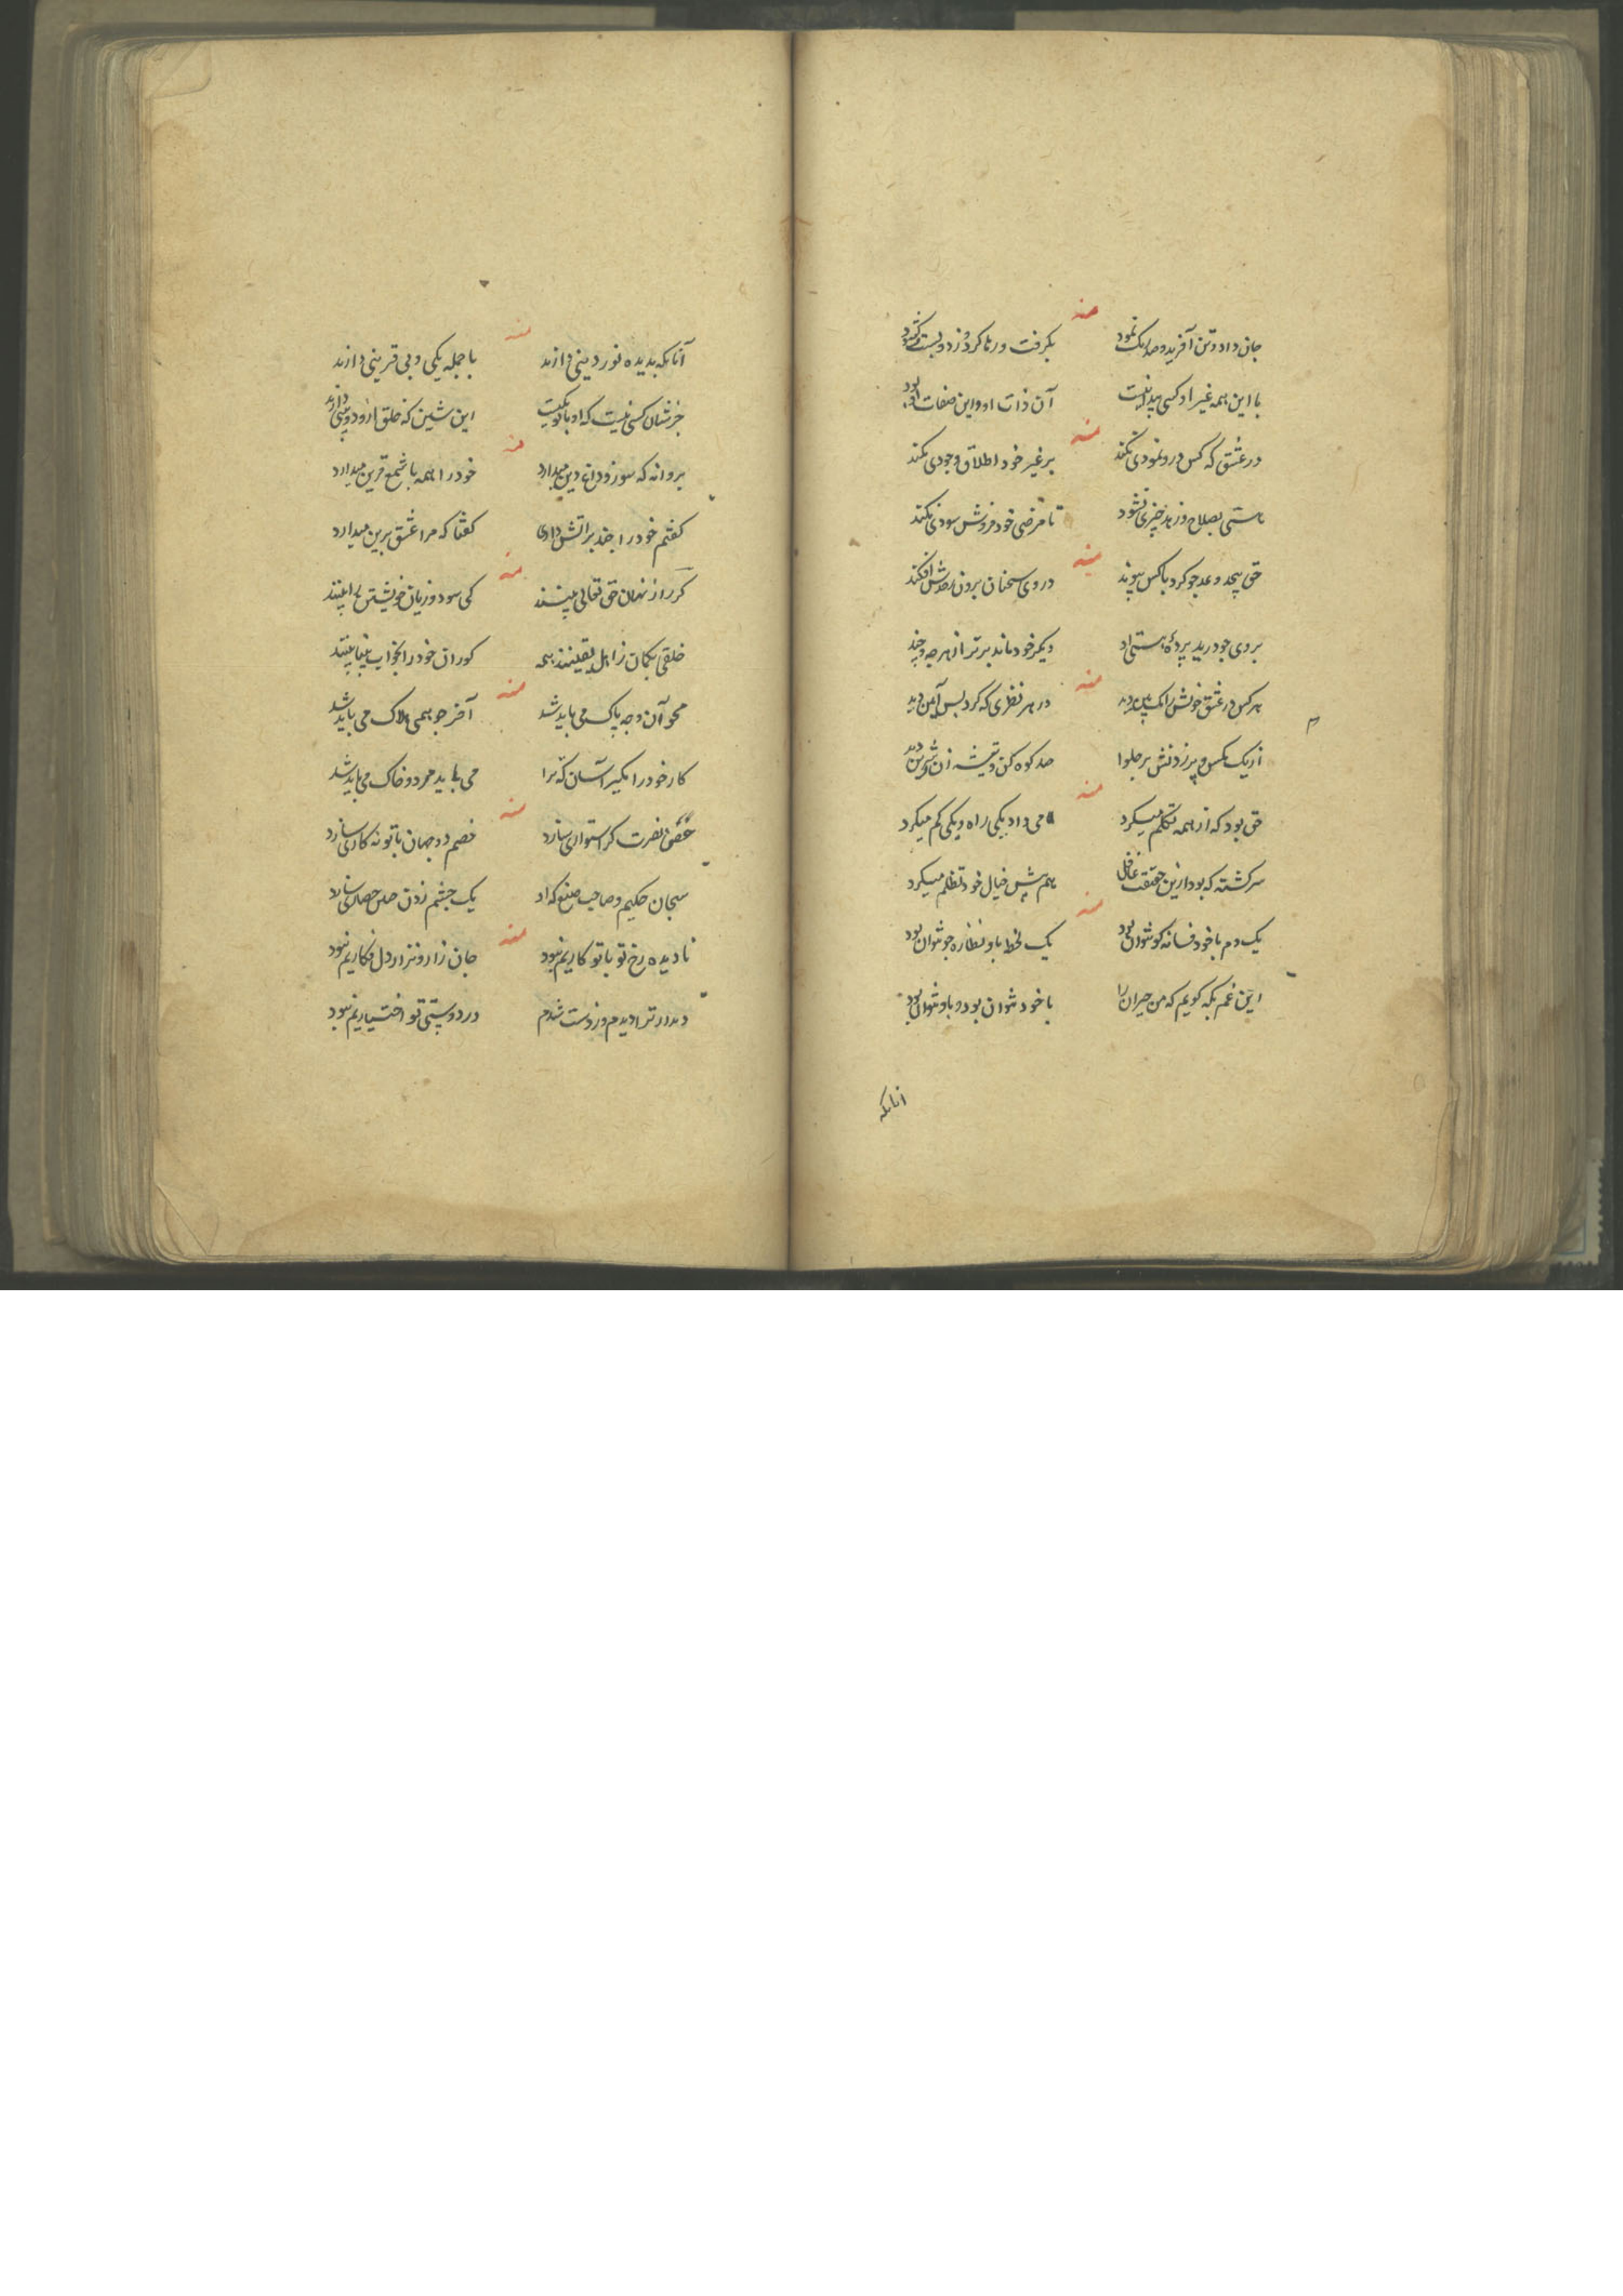 منه
جان داد و تن آفرید و صد رنک نمود بکرفت و رها کرد و زد و بست و کشود
با این همه غیر او کسی پیدا نیست آن ذات او و این صفات او بود
منه
در عشق که کس درو نمودی نکند بر غیر خود اطلاق وجودی نکند
هستی بصلاح و زهد چیزی نشود تا مرضی خود فروش سودی نکند
منه
حق بیحد و عد جو کرد باکس پیوند در وی سخنان برون افکند
بروی جو درید پرده هستی او دیکر خود ماند برتر از هر چه و چند
منه
هر کس در عشق خویش را دید در هر نظری که کرد بس آیین دید
از یک مکس و پر زدنش بر حلوا صد کوه کن و تیشه زن شیرین دید
منه
حق بود که از همه تکلم میکرد می داد یکی راه و یکی کم میکرد
سرکشته که بود ازین حقیقت غافل هم پیش خیال خود تظلم میکرد
منه
یک دم با خود فسانه کو نتوان بود یک لحظه باو نظاره جو نتوان بود
این غم بکه کویم که من حیران را با خود نتوان بود و باو نتوان بود
انانکه
منه
آنانکه بدیده نور دینی دارند با جمله یکی و بی قرینی دارند
جز شان کسی نیست که او با تو یکیست این شین که خلق ازو دوبینی دارند
منه
پروانه که سوز و داغ دین میدارد خود را همه با شمع قرین میدارد
کفتم خود را چند بر آتش داری کفتا که مرا عشق برین میدارد
منه
کر راز نهان حق تعالی بینند کی سود و زیان خویشتن را بینند
خلقی بکمان ز اهل یقینند همه کوران خود را بخواب بینا بینند
منه
محو آن وجه پاک می باید شد آخر جو همی هلاک می باید شد
کار خود را مکیر آسان که ترا می باید مرد و خاک می باید شد
منه
حق نصرت کر استواری سازد خصم دو جهان با تو نه کاری سازد
سبحان حکیم و صاحب صنع که او یک جشم زدن حصاری سازد
منه
نادیده رخ تو با تو کاریم نبود جان زار و نزار و دل فکاریم نبود
دیدار ترا دیدم و از دست شدم در دوستی تو اختیاریم نبود